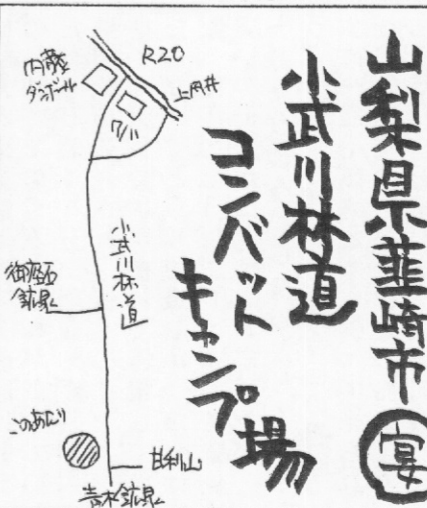 山梨県韮崎市
宴
小武川林道
コンバット
キャンプ場
R20
上円井
内藤
ダンボール
小武川林道
御座石
鉱泉
このあたり
甘利山
青木鉱泉